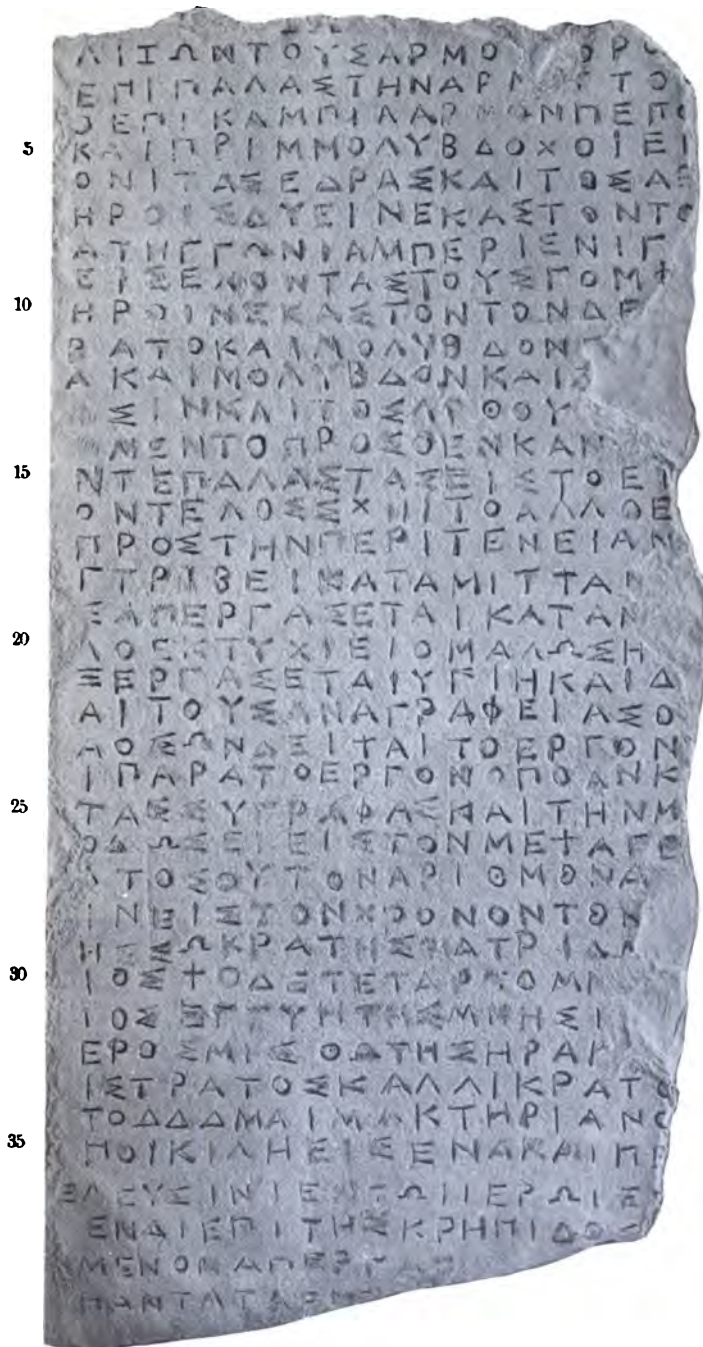 ΛΙΞΩΝΤΟΥΣΑΡΜΟ ΟΡ
ΕΠΙΠΑΛΑΣΤΗΝΑΡΜ ΤΟ
ΟΕΠΙΚΑΜΠΙΛΑΡΜΟΝΠΕΠΟ
5 ΚΑΙΠΡΙΜΜΟΛΥΒΔΟΧΟΙΕΙ
ΟΝΙΤΑΣΕΔΡΑΣΚΑΙΤΟΣΑΕ
ΗΡΟΙΣΔΥΕΙΝΕΚΑΣΤΟΝΤΟ
ΑΤΗΓΓΩΝΙΑΜΠΕΡΙΕΝΙΓ
ΕΙΣΕΛΟΝΤΑΣΤΟΥΣΓΟΜΦ
10 ΗΡΟΙΝΕΚΑΣΤΟΝΤΟΝΔΕ
ΒΑΤΟΚΑΙΜΟΛΥΒΔΟΝΠ
ΑΚΑΙΜΟΛΥΒΔΟΝΚΑΙ
ΣΙΝΚΑΙΤΟΣΑΡΘΟΥ
ΜΕΝΤΟΠΡΟΣΘΕΝΚΑΝ
15 ΝΤΕΠΑΛΑΣΤΑΣΕΙΣΤΟΕΙ
ΟΝΤΕΛΟΣΣΧΗΙΤΟΑΛΛΟΕ
ΠΡΟΣΤΗΝΠΕΡΙΤΕΝΕΙΑΝ
ΓΤΡΙΒΕΙΚΑΤΑΜΙΤΤΑΝ
ΕΑΠΕΡΓΑΣΕΤΑΙΚΑΤΑΝ
20 ΛΟΕΚΤΥΧΙΕΙΟΜΑΛΩΣΗ
ΞΕΡΓΑΣΕΤΑΙΥΓΙΗΚΑΙΔ
ΑΙΤΟΥΣΑΝΑΓΡΑΦΕΙΑΣΟ
ΑΟΣΩΝΔΕΙΤΑΙΤΟΕΡΓΟΝ
ΙΠΑΡΑΤΟΕΡΓΟΝΟΠΟΑΝΚ
25 ΤΑΣΣΥΓΓΡΑΦΑΣΠΑΙΤΗΝΜ
ΟΔΩΣΕΙΕΙΣΤΟΝΜΕΤΑΓΕ
ΑΤΟΣΟΥΤΟΝΑΡΙΘΜΟΝΑ
ΙΝΕΙΣΤΟΝΧΡΟΝΟΝΟΝΤΟΝ
ΗΣΣΩΚΡΑΤΗΣΠΑΤΡΙΔ
30 ΙΟΣΤΟΔΕΤΕΤΑΡΤΟΜ
ΙΟΣΕΓΓΥΗΤΗΣΜΝΗΣΙ
ΕΡΟΣΜΙΣΘΩΤΗΣΗΡΑΓ
ΙΣΤΡΑΤΟΣΚΑΛΛΙΚΡΑΤΟ
ΤΟΔΔΔΜΑΙΜΑΚΤΗΡΙΑΝΟ
35 ΠΟΙΚΙΛΗΕΙΣΕΝΑΚΑΙΠΕ
ΕΛΕΥΣΙΝΙΕΝΤΩΙΙΕΡΩΙΕ
ΕΝΑΙΕΠΙΤΗΣΚΡΗΠΙΔΟΣ
ΜΕΝΟΝΑΠΕΡΓΑ
ΠΑΝΤΑΤΑ